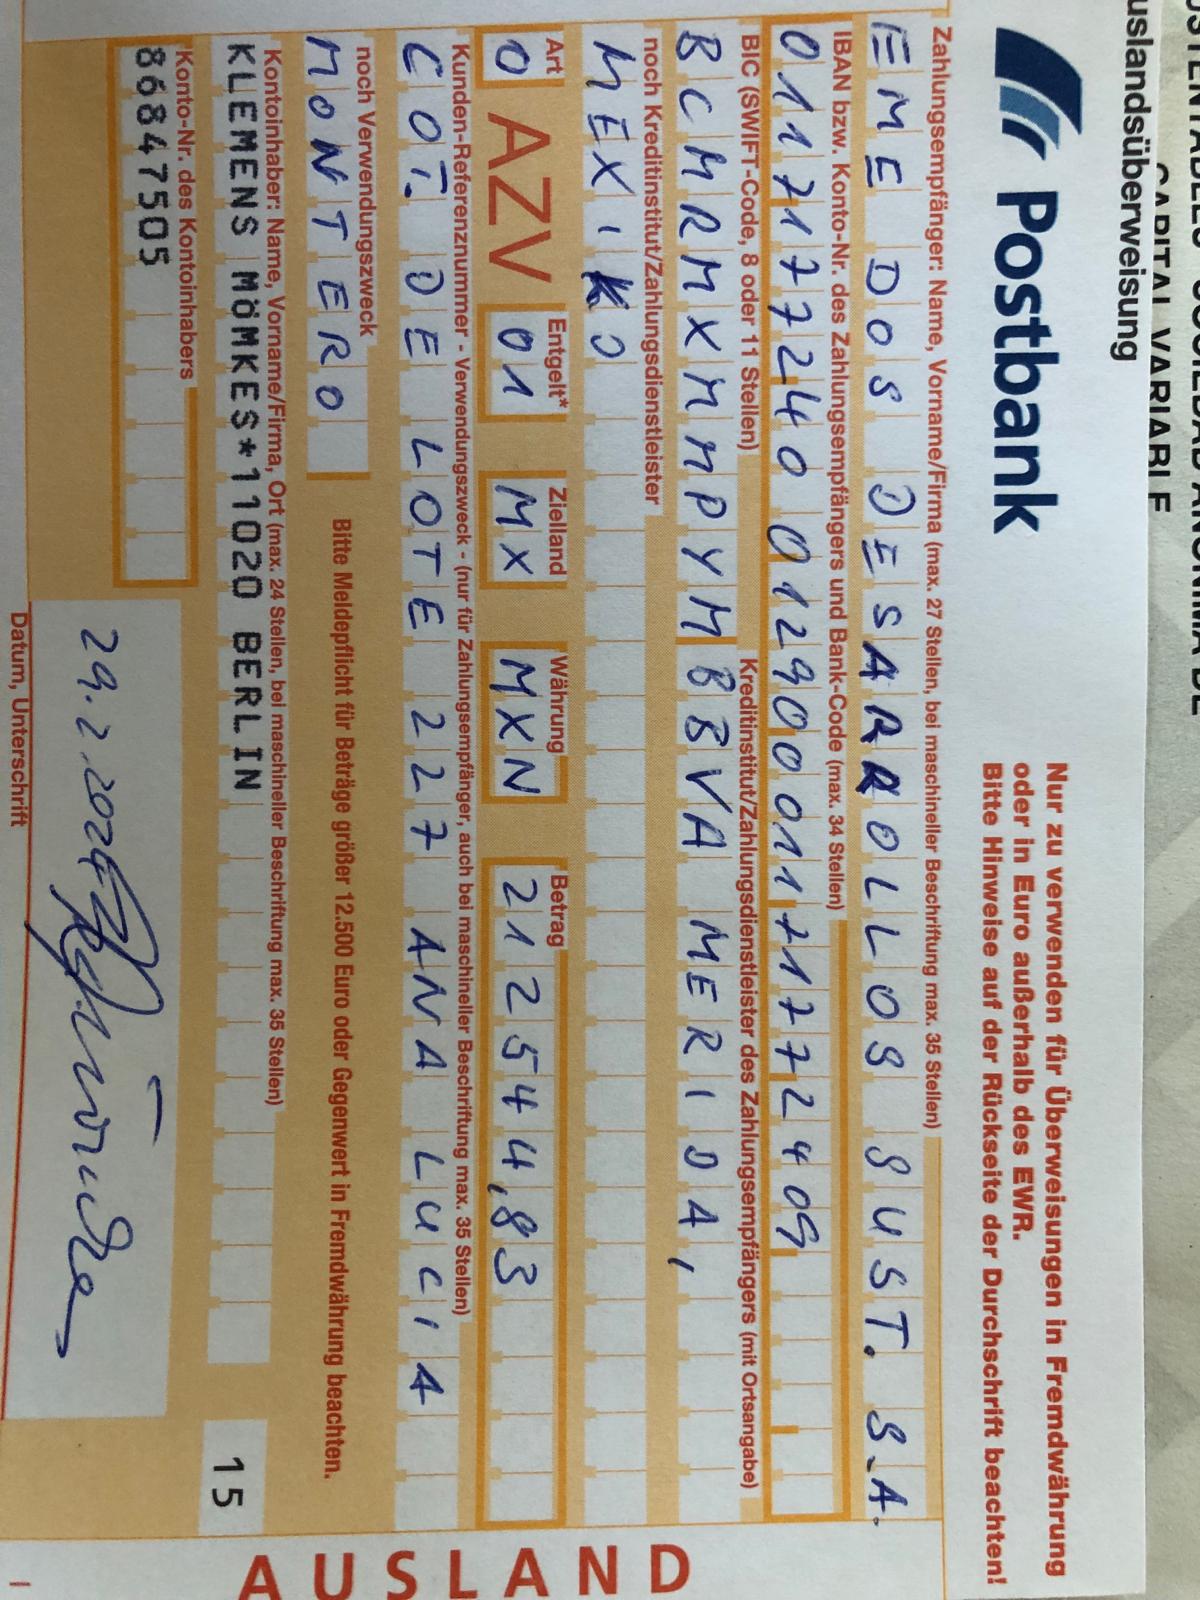 CAPITAL VARIABLE
uslandsüberweisung
Postbank
Nur zu verwenden für Überweisungen in Fremdwährung
oder in Euro außerhalb des EWR.
Bitte Hinweise auf der Rückseite der Durchschrift beachten!
Zahlungsempfänger: Name, Vorname/Firma (max. 27 Stellen, bei maschineller Beschriftung max. 35 Stellen)
EME DOS DESARROLLOS SUST. S.A.
IBAN bzw. Konto-Nr. des Zahlungsempfängers und Bank-Code (max. 34 Stellen)
0117177240 01290001171772409
BIC (SWIFT-Code, 8 oder 11 Stellen) Kreditinstitut/Zahlungsdienstleister des Zahlungsempfängers (mit Ortsangabe)
BCMRMXMMPYM BBVA MERIDA,
noch Kreditinstitut/Zahlungsdienstleister
MEXIKO
Art Entgelt* Zielland Währung Betrag
0 AZV 01 MX MXN 212544,83
Kunden-Referenznummer - Verwendungszweck - (nur für Zahlungsempfänger, auch bei maschineller Beschriftung max. 35 Stellen)
COT. DE LOTE 227 ANA LUCIA
noch Verwendungszweck
MONTERO
Bitte Meldepflicht für Beträge größer 12.500 Euro oder Gegenwert in Fremdwährung beachten.
Kontoinhaber: Name, Vorname/Firma, Ort (max. 24 Stellen, bei maschineller Beschriftung max. 35 Stellen)
KLEMENS MÖMKES*11020 BERLIN
15
Konto-Nr. des Kontoinhabers
86847505
29.2.2024
Datum, Unterschrift
AUSLAND